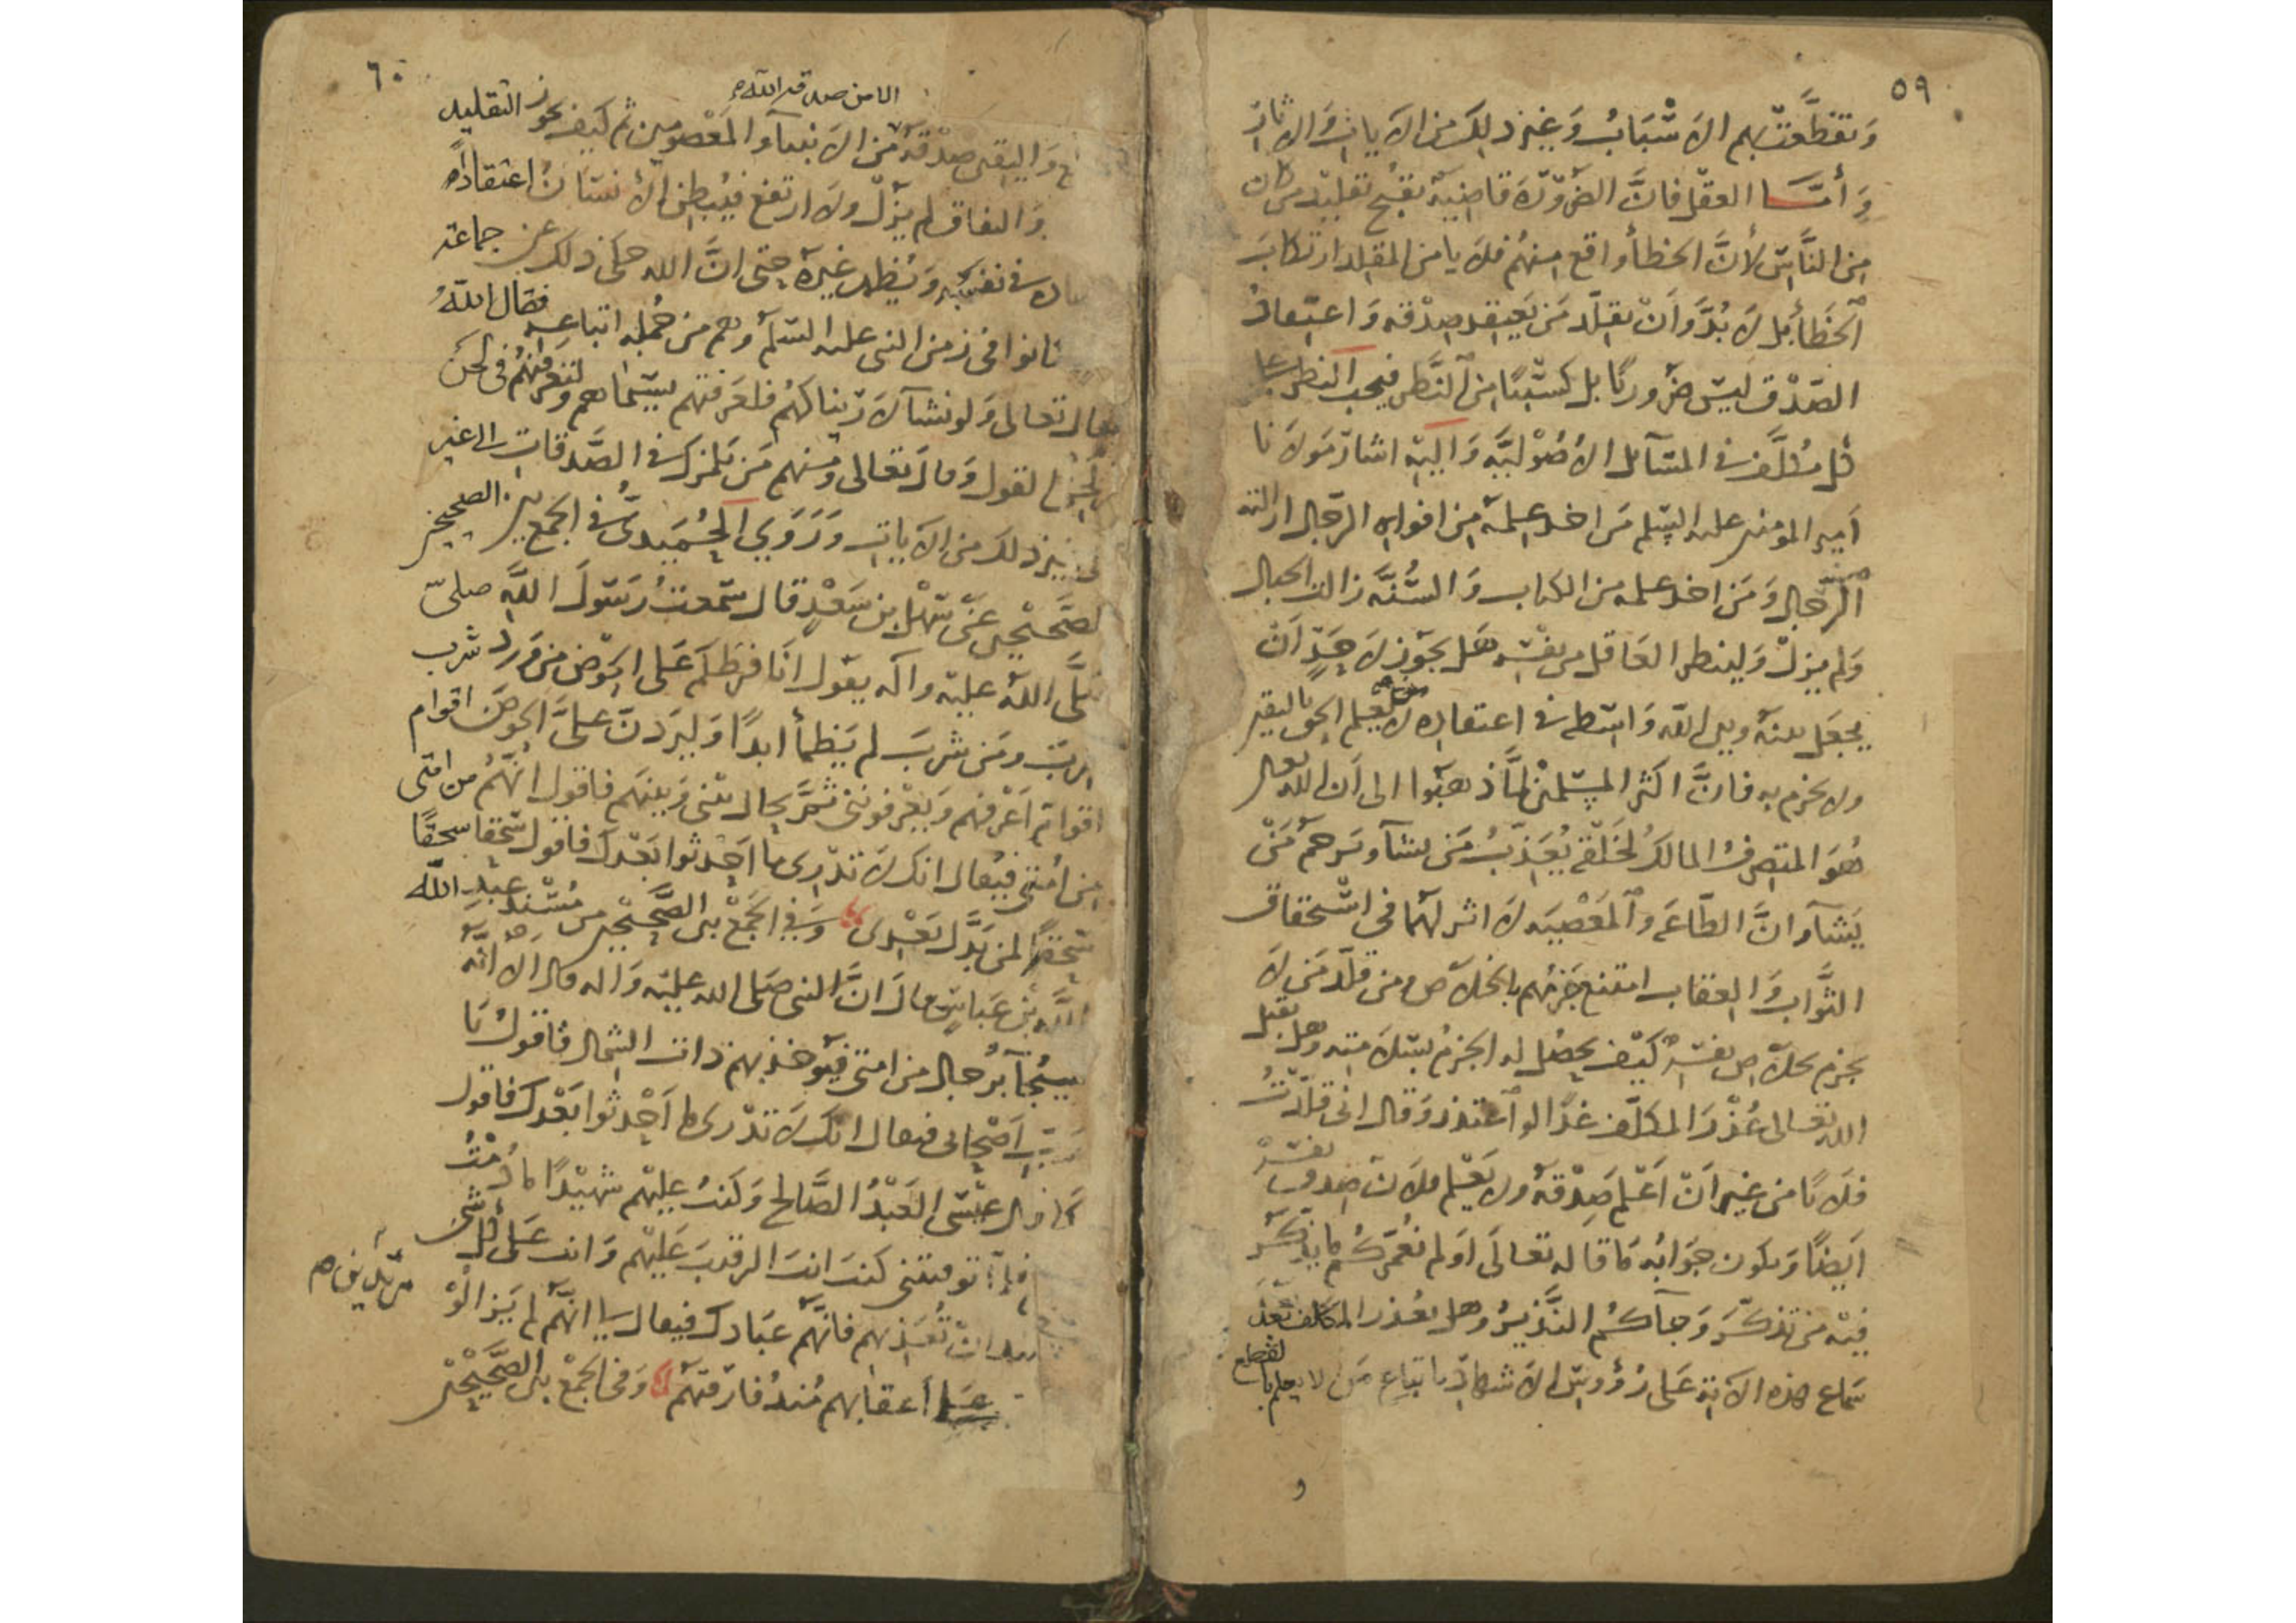 ٥٩
وَتقطَّعَتْ بهم الاَسْبَابُ وَغير ذلك من الايات والاثار
وَأمَّا العقل فانَّ الضَّرُوْرَة قاضِيَة بقبْح تقليْد من كان
مِن النَّاسِ لأنَّ الخطأ واقع منهُم فلا يامن المقلد ارتكابَ
الخَطأ بل لا بُدَّ وَانْ يقلّد مَن يَعتقد صِدْقه وَاعتقادُ
الصّدْق ليسَ ضَرُوريًّا بل كسْبيًّا من النَّظَر فيجب النظر على
كل مكلَّف في المسَائل الأصُوْليَّه وَاليْه اشارَ مَولاَنا
اَمير المومنين عليه السّلم مَن اخذ علمهُ مِن افواه الرّجال ازالته
الرّجال وَمَن اخذ علمه من الكتاب وَالسُّنَّه زالت الجبال
وَلم يزلْ وَلينظر العَاقل من نفسه هَل يجوز لاَحَدٍ اَنْ
يجعَل بينهُ وبين الله وَاسطه في اعتقاده من لا يعلم الحق باليقين
ولا يجزم به فانَّ اكثر المسْلمين لمَّا ذهبُوا الى اَن الله تعالى
هُوَ المتصرفُ المالكُ لخَلْقه يُعَذّبُ مَن يشآء ويرحمُ مَنْ
يَشآء وانَّ الطّاعَة والمَعْصِيَه لاَ اثر لهُمَا في اسْتحقاق
الثَّواب وَالعقاب امتنع جَزمُهم بالخلاَص ومن قلَّد مَن لاَ
يجزم بخلاَص نفسِه كيْف يحصُل له الجزمُ بسَلاَمته وهل يقبل
الله تعالى عُذرَ المكلَّف غدًا لو اعتذر وَقال انى قلّدْتُ
فلاَنًا من غير انْ اَعْلم صِدْقهُ ولا يَعْلم فلاَن صِدق نفسِه
اَيضًا وَيكون جوَابُه مَا قاله تعالَى اَوَلم نعَمّركُم ما يتذكّر
فيْه من تذكّرَ وَجآءكم النَّذيرُ وهل يعذر المكلف بَعْدَ
سَماع هذه الاية عَلى رُؤوسِ الاَشهادِ باتباعِ مَن لا يعلم بالقطع
و
٦٠
الا من صدقه الله
وَاليقين صِدْقهُ من الاَنبيآء وَالمَعْصومين ثم كيف يجوز التقليد
وَالنفاق لم يزلْ ولاَ ارتفع فيُبطن الاْنسَانُ اعتقادًا
في نفسه وَيُظهر غيرهُ حتى انَّ الله حكى ذلك عن جماعة
كانوا في زمن النبى عليه السّلم وهم من جُمله اتباعِه فقال اللهُ
تعالى وَلو نشآء لاَرَيْناكهُم فلعَرفتهم بسيْماهم ولتعرفنّهُم في لحن
القول وَقالَ تعالى ومنهم مَن يَلمزك في الصَّدقات الى غير
ذلك من الايات وَرَوَى الحُمَيدىُّ في الجمع بين الصحيحين
عَنْ سَهْل بن سَعْدٍ قال سَمعتُ رَسُولَ اللهِ صلى
اللهُ عليْه وآله يقول انَا فرَطكم عَلى الحَوْض من وَرَد شرب
ومَن شربَ لم يَظمأ ابدًا وَليَردنَّ علىَّ الحوضَ اقوام
اقوام اَعْرفهم وَيَعْرفونى ثمَّ يحال بينى وَبينهم فاقول انّهُم من امّتى
مِن امُّتى فيُقال انك لاَ تدْرى ما احْدثوا بَعْدك فاقول سُحقا سحقًا
سُحقًا لمن بَدَّل بَعْدى وَفي الجَمْع بين الصَّحيْحين من مُسْند عبْدِ الله
بن عَباسٍ قالَ انَّ النبى صَلى الله عليْه وَاله قال اَلاَ انَّهُ
سيُجآءُ برجال من امتى فيؤخذ بهم ذات الشمال فاقولُ يَا
رَبّ اَصْحَابى فيقال انك لاَ تدْرى ما اَحْدثوا بَعْدك فاقول
كما قال عيْسَى العَبْدُ الصَّالح وَكنتُ عليْهم شهيْدًا ما دُمْتُ
فلمّا توفيتنى كنتَ انتَ الرقيبَ عَليْهم وَانت عَلى كل شى
انْ تُعَذبهم فانّهم عبَادك فيقال لى انّهم لم يَزالوْا
مرتدين
على أعقابهم مُنذُ فارَقتهم وَفي الجَمْع بين الصَّحيْحين